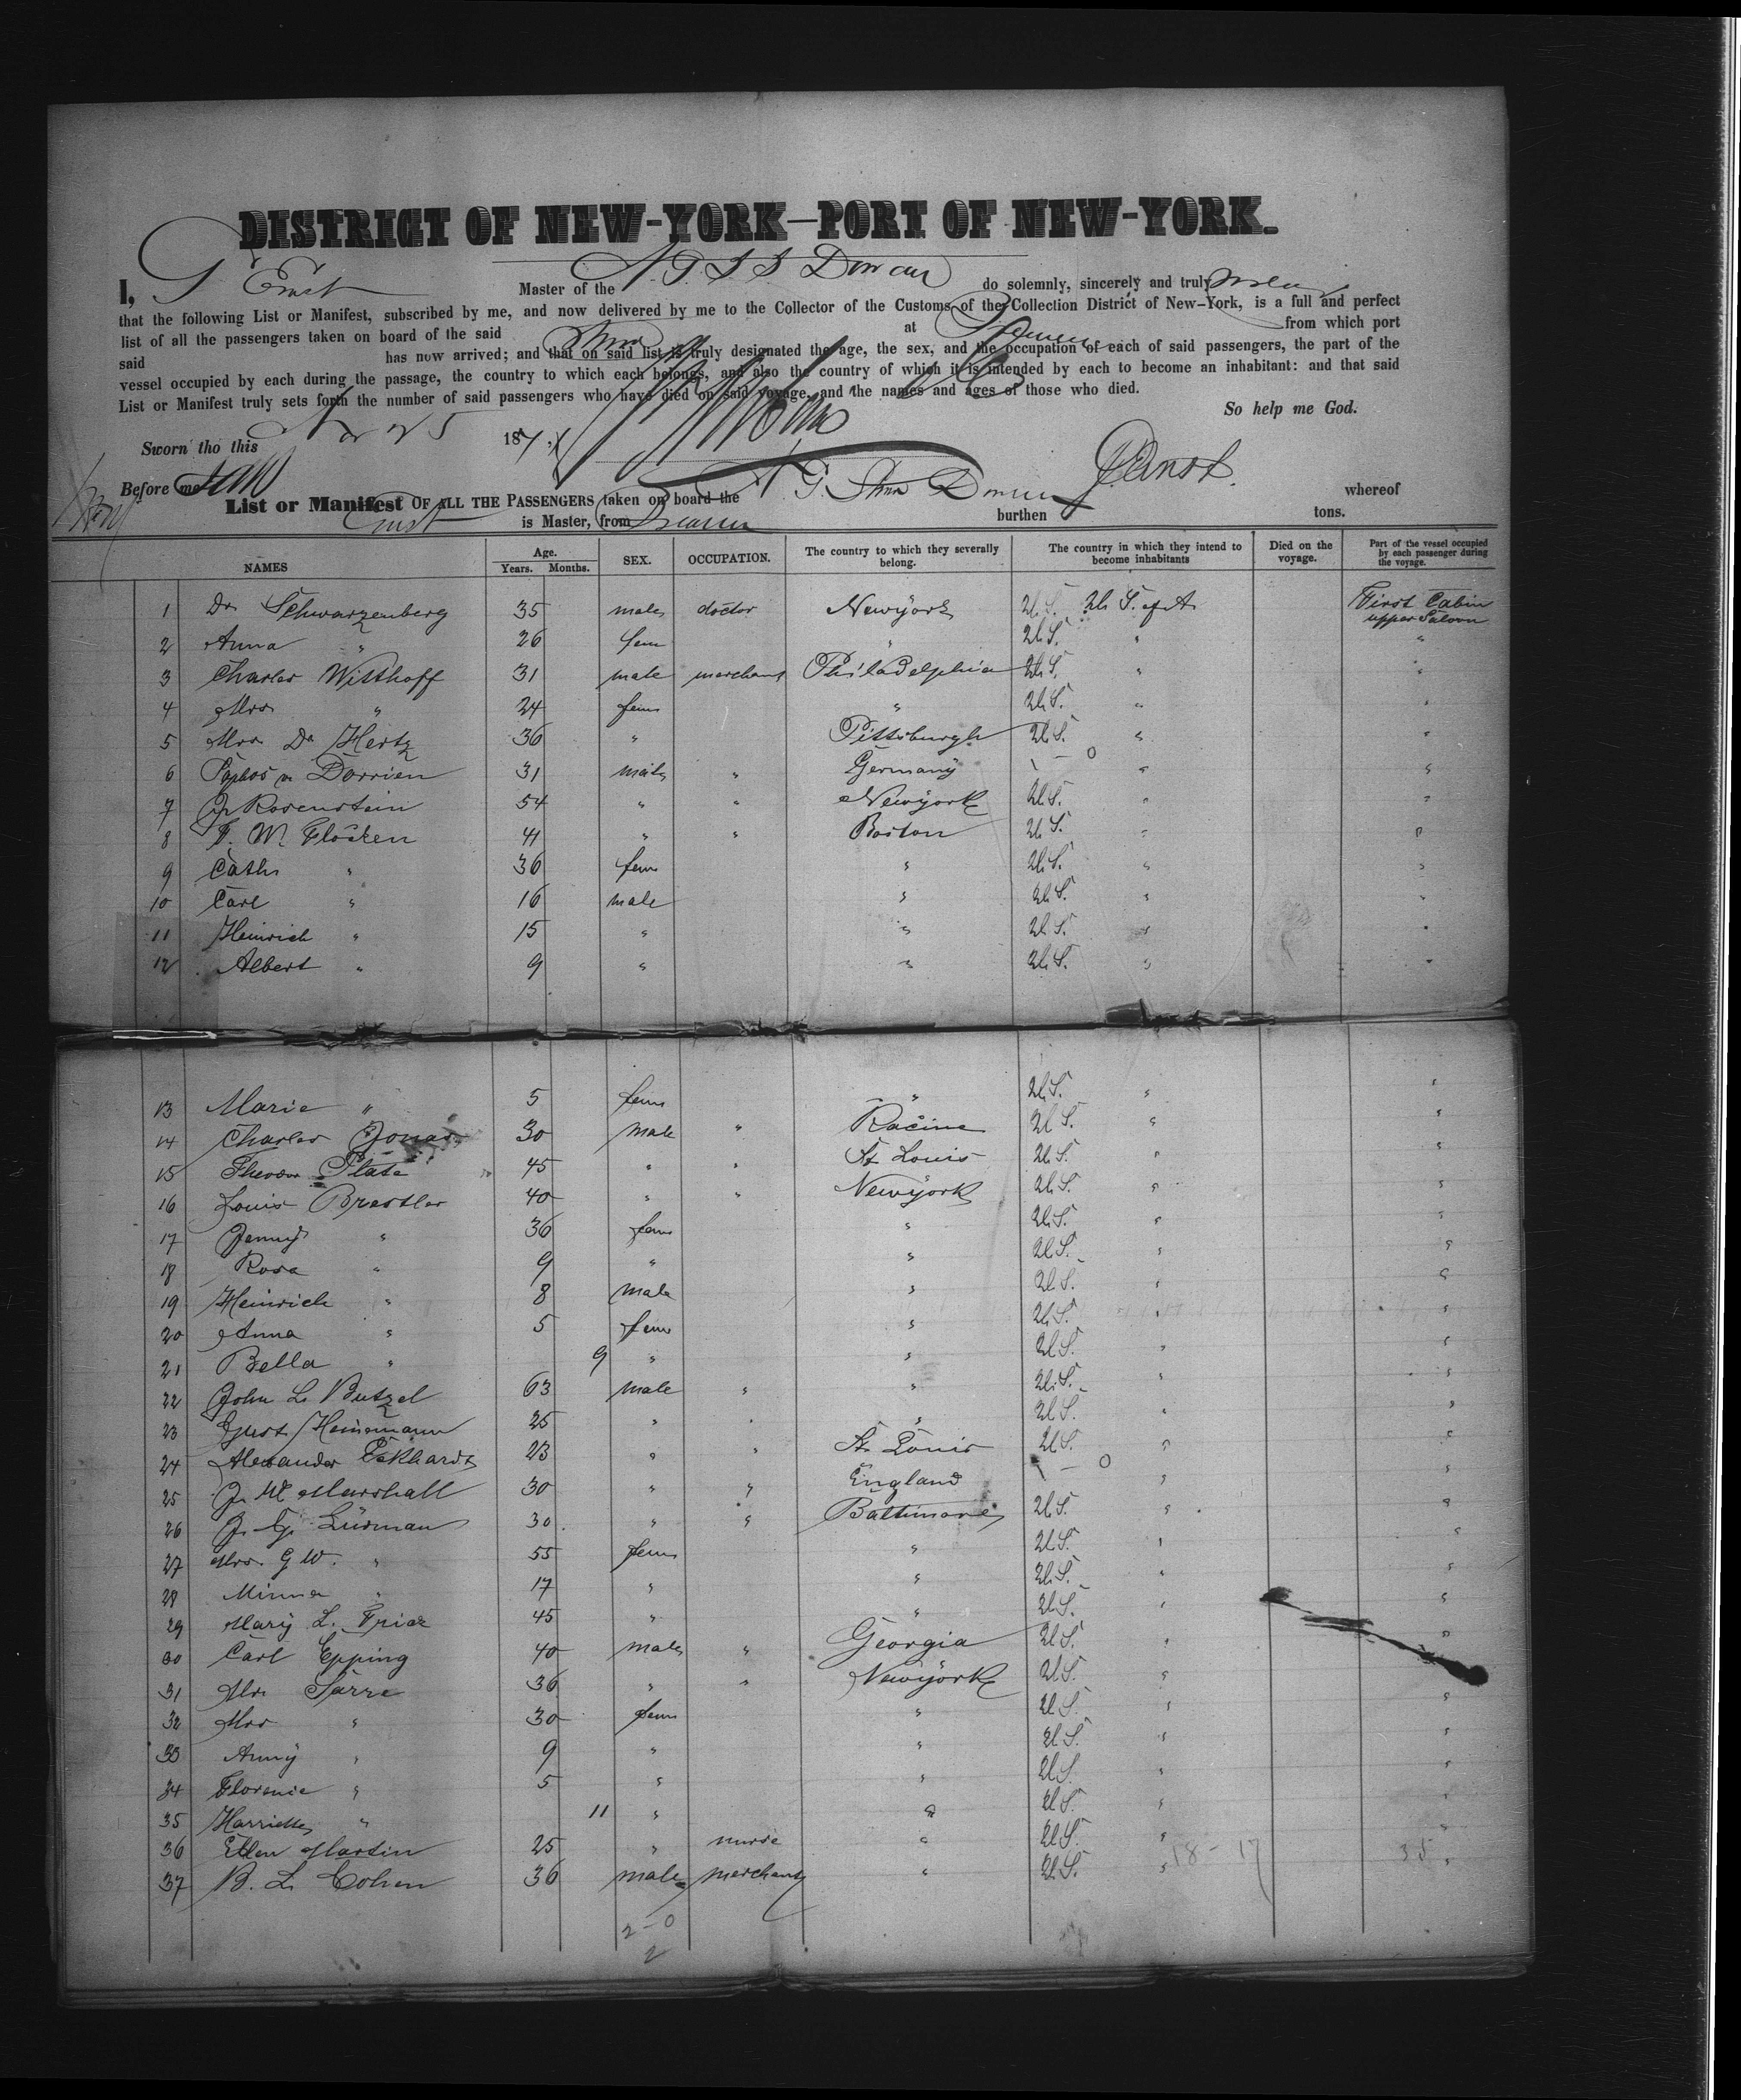 DISTRICT OF NEW-YORK—PORT OF NEW-YORK.
I, G Ernst Master of the N. G. S. S. Donau do solemnly, sincerely and truly swear
that the following List or Manifest, subscribed by me, and now delivered by me to the Collector of the Customs of the Collection District of New-York, is a full and perfect
list of all the passengers taken on board of the said Stmr at Bremen from which port
said has now arrived; and that on said list is truly designated the age, the sex, and the occupation of each of said passengers, the part of the
vessel occupied by each during the passage, the country to which each belongs, and also the country of which it is intended by each to become an inhabitant: and that said
List or Manifest truly sets forth the number of said passengers who have died on said voyage, and the names and ages of those who died.
So help me God.
Sworn tho this Nov 25 187
Before me
G. Ernst.
List or Manifest OF ALL THE PASSENGERS taken on board the N. G. Stmr Donau whereof
Ernst is Master, from Bremen burthen tons.
NAMES Age. Years. Months. SEX. OCCUPATION. The country to which they severally belong. The country in which they intend to become inhabitants Died on the voyage. Part of the vessel occupied by each passenger during the voyage.
1 Dr Schwarzenberg 35 male doctor Newyork U.S. U. S. of A. First Cabin upper Saloon
2 Anna " 26 fem " U.S. " "
3 Charles Witthoff 31 male merchant Philadelphia U.S. " "
4 Mrs " 24 fem " U.S. " "
5 Mrs Dr Hertz 36 " Pittsburgh U.S. " "
6 v. Dorrien 31 male " Germany \ — 0 " "
7 J. Rosenstein 54 " " Newyork U.S. " "
8 F. W. Flocken 41 " " Boston U.S. " "
9 Cath. " 36 fem " U.S. " "
10 Carl " 16 male " U.S. " "
11 Heinrich " 15 " " U.S. " "
12 Albert " 9 " " U.S. " "
13 Marie " 5 fem " U.S. " "
14 Charles Jonas 30 male " Racine U.S. " "
15 Theodor Plate 45 " " St Louis U.S. " "
16 Louis Bresller 40 " " Newyork U.S. " "
17 Jenny " 36 fem " U.S. " "
18 Rosa " 9 " " U.S. " "
19 Heinrich " 8 male " U.S. " "
20 Anna " 5 fem " U.S. " "
21 Bella " 9 " " U.S. " "
22 John L. Butzel 63 male " " U.S. " "
23 Gust. Heinemann 25 " " " U.S. " "
24 Alexander Eckhardt 23 " " St. Louis U.S. " "
25 J. W. Marshall 30 " " England \ — 0 " "
26 J. G. Lürman 30 " " Baltimore U.S. " "
27 Mrs. G W. " 55 fem " U.S. " "
28 Minna " 17 " " U.S. " "
29 Mary L. Friar 45 " " U.S. " "
30 Carl Epping 40 male " Georgia U.S. " "
31 Mr. Sarre 36 " " Newyork U.S. " "
32 Mrs " 30 fem " U.S. " "
33 Anny " 9 " " U.S. " "
34 Florence " 5 " " U.S. " "
35 Harriette " 11 " " U.S. " "
36 Ellen Martin 25 " nurse " U.S. " "
37 B. L. Cohen 36 male merchant " U.S. " "
18 - 17 35
2 - 0
2